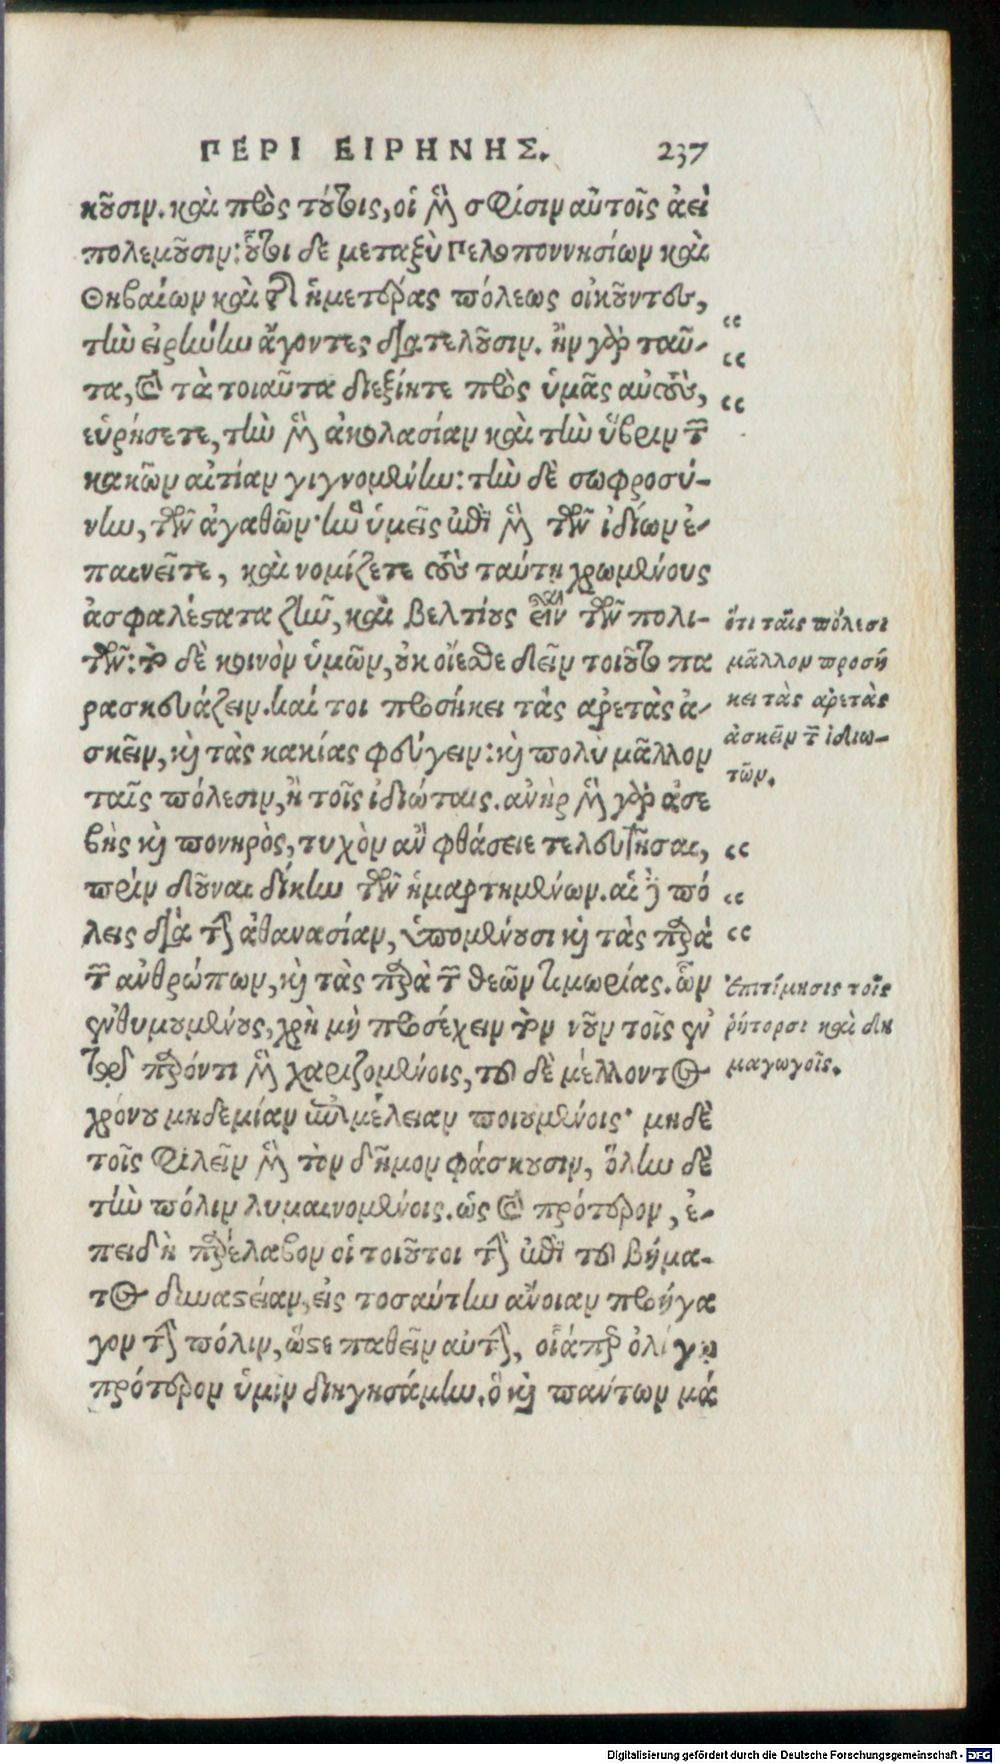 ΠΕΡΙ ΕΙΡΗΝΗΣ. 237
κοῦσιν. καὶ πρὸς τούτοις, οἱ μὲν σφίσιν αὐτοῖς ἀεὶ
πολεμοῦσιν: οὗτοι δὲ μεταξὺ Πελοποννησίων καὶ
Θηβαίων καὶ τῆς ἡμετέρας πόλεως οἰκοῦντες,
τὴν εἰρήνην ἄγοντες διατελοῦσιν. ἢν γὰρ ταῦ-
τα, καὶ τὰ τοιαῦτα διεξίητε πρὸς ὑμᾶς αὐτοὺς,
εὑρήσετε, τὴν μὲν ἀκολασίαν καὶ τὴν ὕβριν τῶν
κακῶν αἰτίαν γιγνομένην: τὴν δὲ σωφροσύ-
νην, τῶν ἀγαθῶν· ἣν ὑμεῖς ἐπὶ μὲν τῶν ἰδίων ἐ-
παινεῖτε, καὶ νομίζετε τοὺς ταύτῃ χρωμένους
ἀσφαλέστατα ζῆν, καὶ βελτίους εἶναι τῶν πολι-
τῶν: τὸ δὲ κοινὸν ὑμῶν, οὐκ οἴεσθε δεῖν τοιοῦτο πα
ρασκευάζειν. καί τοι προσήκει τὰς ἀρετὰς ἀ-
σκεῖν, καὶ τὰς κακίας φεύγειν: καὶ πολὺ μᾶλλον
ταῖς πόλεσιν, ἢ τοῖς ἰδιώταις. ἀνὴρ μὲν γὰρ ἀσε
βὴς καὶ πονηρὸς, τυχὸν ἂν φθάσειε τελευτῆσαι,
πρὶν δοῦναι δίκην τῶν ἡμαρτημένων. αἱ δὲ πό
λεις διὰ τὴν ἀθανασίαν, ὑπομένουσι καὶ τὰς παρὰ
τῶν ἀνθρώπων, καὶ τὰς παρὰ τῶν θεῶν τιμωρίας. ὧν
ἐνθυμουμένους, χρὴ μὴ προσέχειν τὸν νοῦν τοῖς ἐν
τῷ παρόντι μὲν χαριζομένοις, τοῦ δὲ μέλλοντος
χρόνου μηδεμίαν ἐπιμέλειαν ποιουμένοις· μηδὲ
τοῖς φιλεῖν μὲν τὸν δῆμον φάσκουσιν, ὅλην δὲ
τὴν πόλιν λυμαινομένοις. ὡς καὶ πρότερον, ἐ-
πειδὴ παρέλαβον οἱ τοιοῦτοι τὴν ἐπὶ τοῦ βήμα-
τος δυναστείαν, εἰς τοσαύτην ἄνοιαν προήγα
γον τὴν πόλιν, ὥστε παθεῖν αὐτὴν, οἷάπερ ὀλίγῳ
πρότερον ὑμῖν διηγησάμην. ὃ καὶ πάντων μά
“
“
“
ὅτι ταῖς πόλεσι
μᾶλλον προσή
κει τὰς ἀρετὰς
ἀσκεῖν τῶν ἰδιω-
τῶν.
“
“
“
Ἐπιτίμησις τοῖς
ῥήτορσι καὶ δη
μαγωγοῖς.
Digitalisierung gefördert durch die Deutsche Forschungsgemeinschaft - DFG